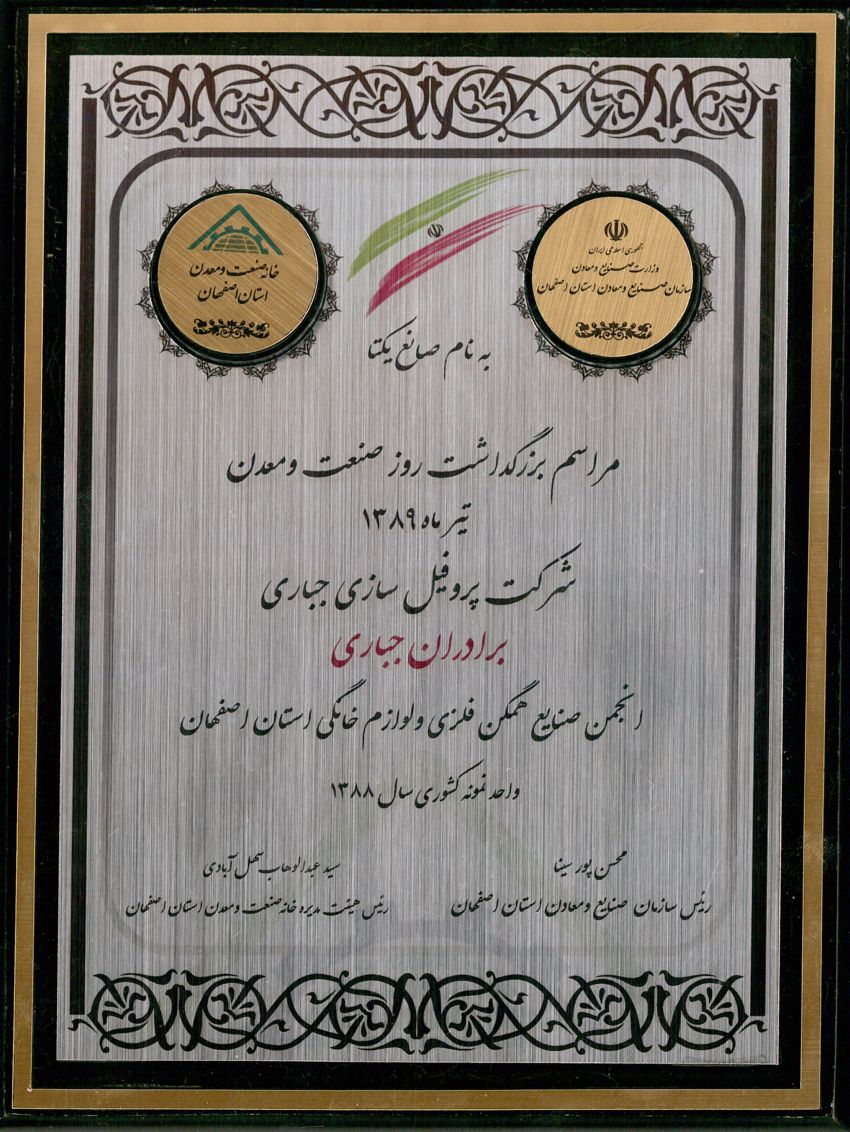 جمهوری اسلامی ایران
وزارت صنایع و معادن
سازمان صنایع و معادن استان اصفهان
خانه صنعت و معدن
استان اصفهان
به نام صانع یکتا
مراسم بزرگداشت روز صنعت و معدن
تیر ماه ۱۳۸۹
شرکت پروفیل سازی جباری
برادران جباری
انجمن صنایع همگن فلزی و لوازم خانگی استان اصفهان
واحد نمونه کشوری سال ۱۳۸۸
محسن پور سینا
رئیس سازمان صنایع و معادن استان اصفهان
سید عبدالوهاب سهل آبادی
رئیس هیئت مدیره خانه صنعت و معدن استان اصفهان